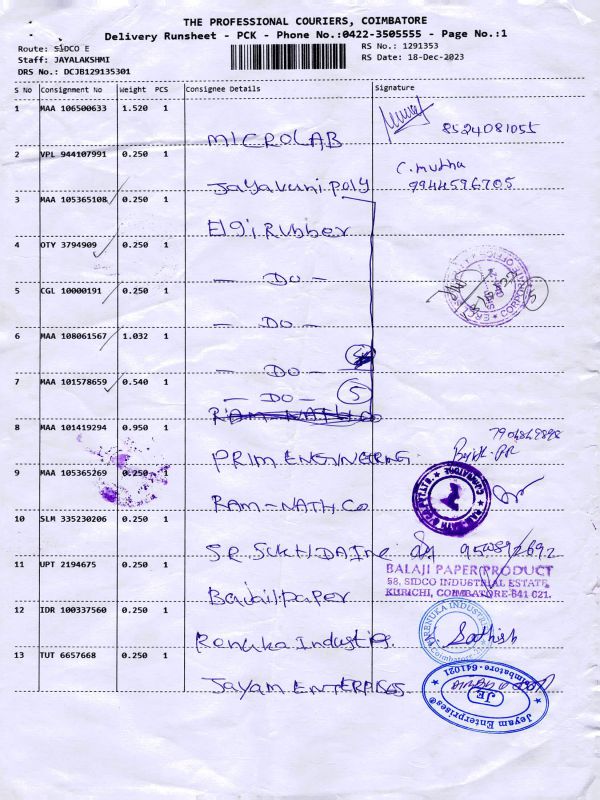 THE PROFESSIONAL COURIERS, COIMBATORE
Delivery Runsheet - PCK - Phone No.:0422-3505555 - Page No.:1
Route: SIDCO E
RS No.: 1291353
Staff: JAYALAKSHMI
RS Date: 18-Dec-2023
DRS No.: DCJB129135301
S No Consignment No Weight PCS Consignee Details Signature
1 MAA 106500633 1.520 1 MICROLAB 8524081055
2 VPL 944107991 0.250 1 Jayavuni poly C. muthu
7944596705
3 MAA 105365108 0.250 1 Elgi Rubber
4 OTY 3794909 0.250 1 - DO -
5 CGL 10000191 0.250 1 - DO -
6 MAA 108061567 1.032 1 - DO -
7 MAA 101578659 0.540 1 - DO - 5
RAM-NATH Co
8 MAA 101419294 0.950 1 PRIM.ENGINEERING
9 MAA 105365269 0.250 1 RAM-NATH.Co
10 SLM 335230206 0.250 1
11 UPT 2194675 0.250 1
BALAJI PAPER PRODUCT
58, SIDCO INDUSTRIAL ESTATE
KURICHI, COIMBATORE-641 021.
12 IDR 100337560 0.250 1 Renuka Industris. Sathish
13 TUT 6657668 0.250 1 JAYAM ENTERPRISES
Jeyam Enterprises Coimbatore - 641021
JE